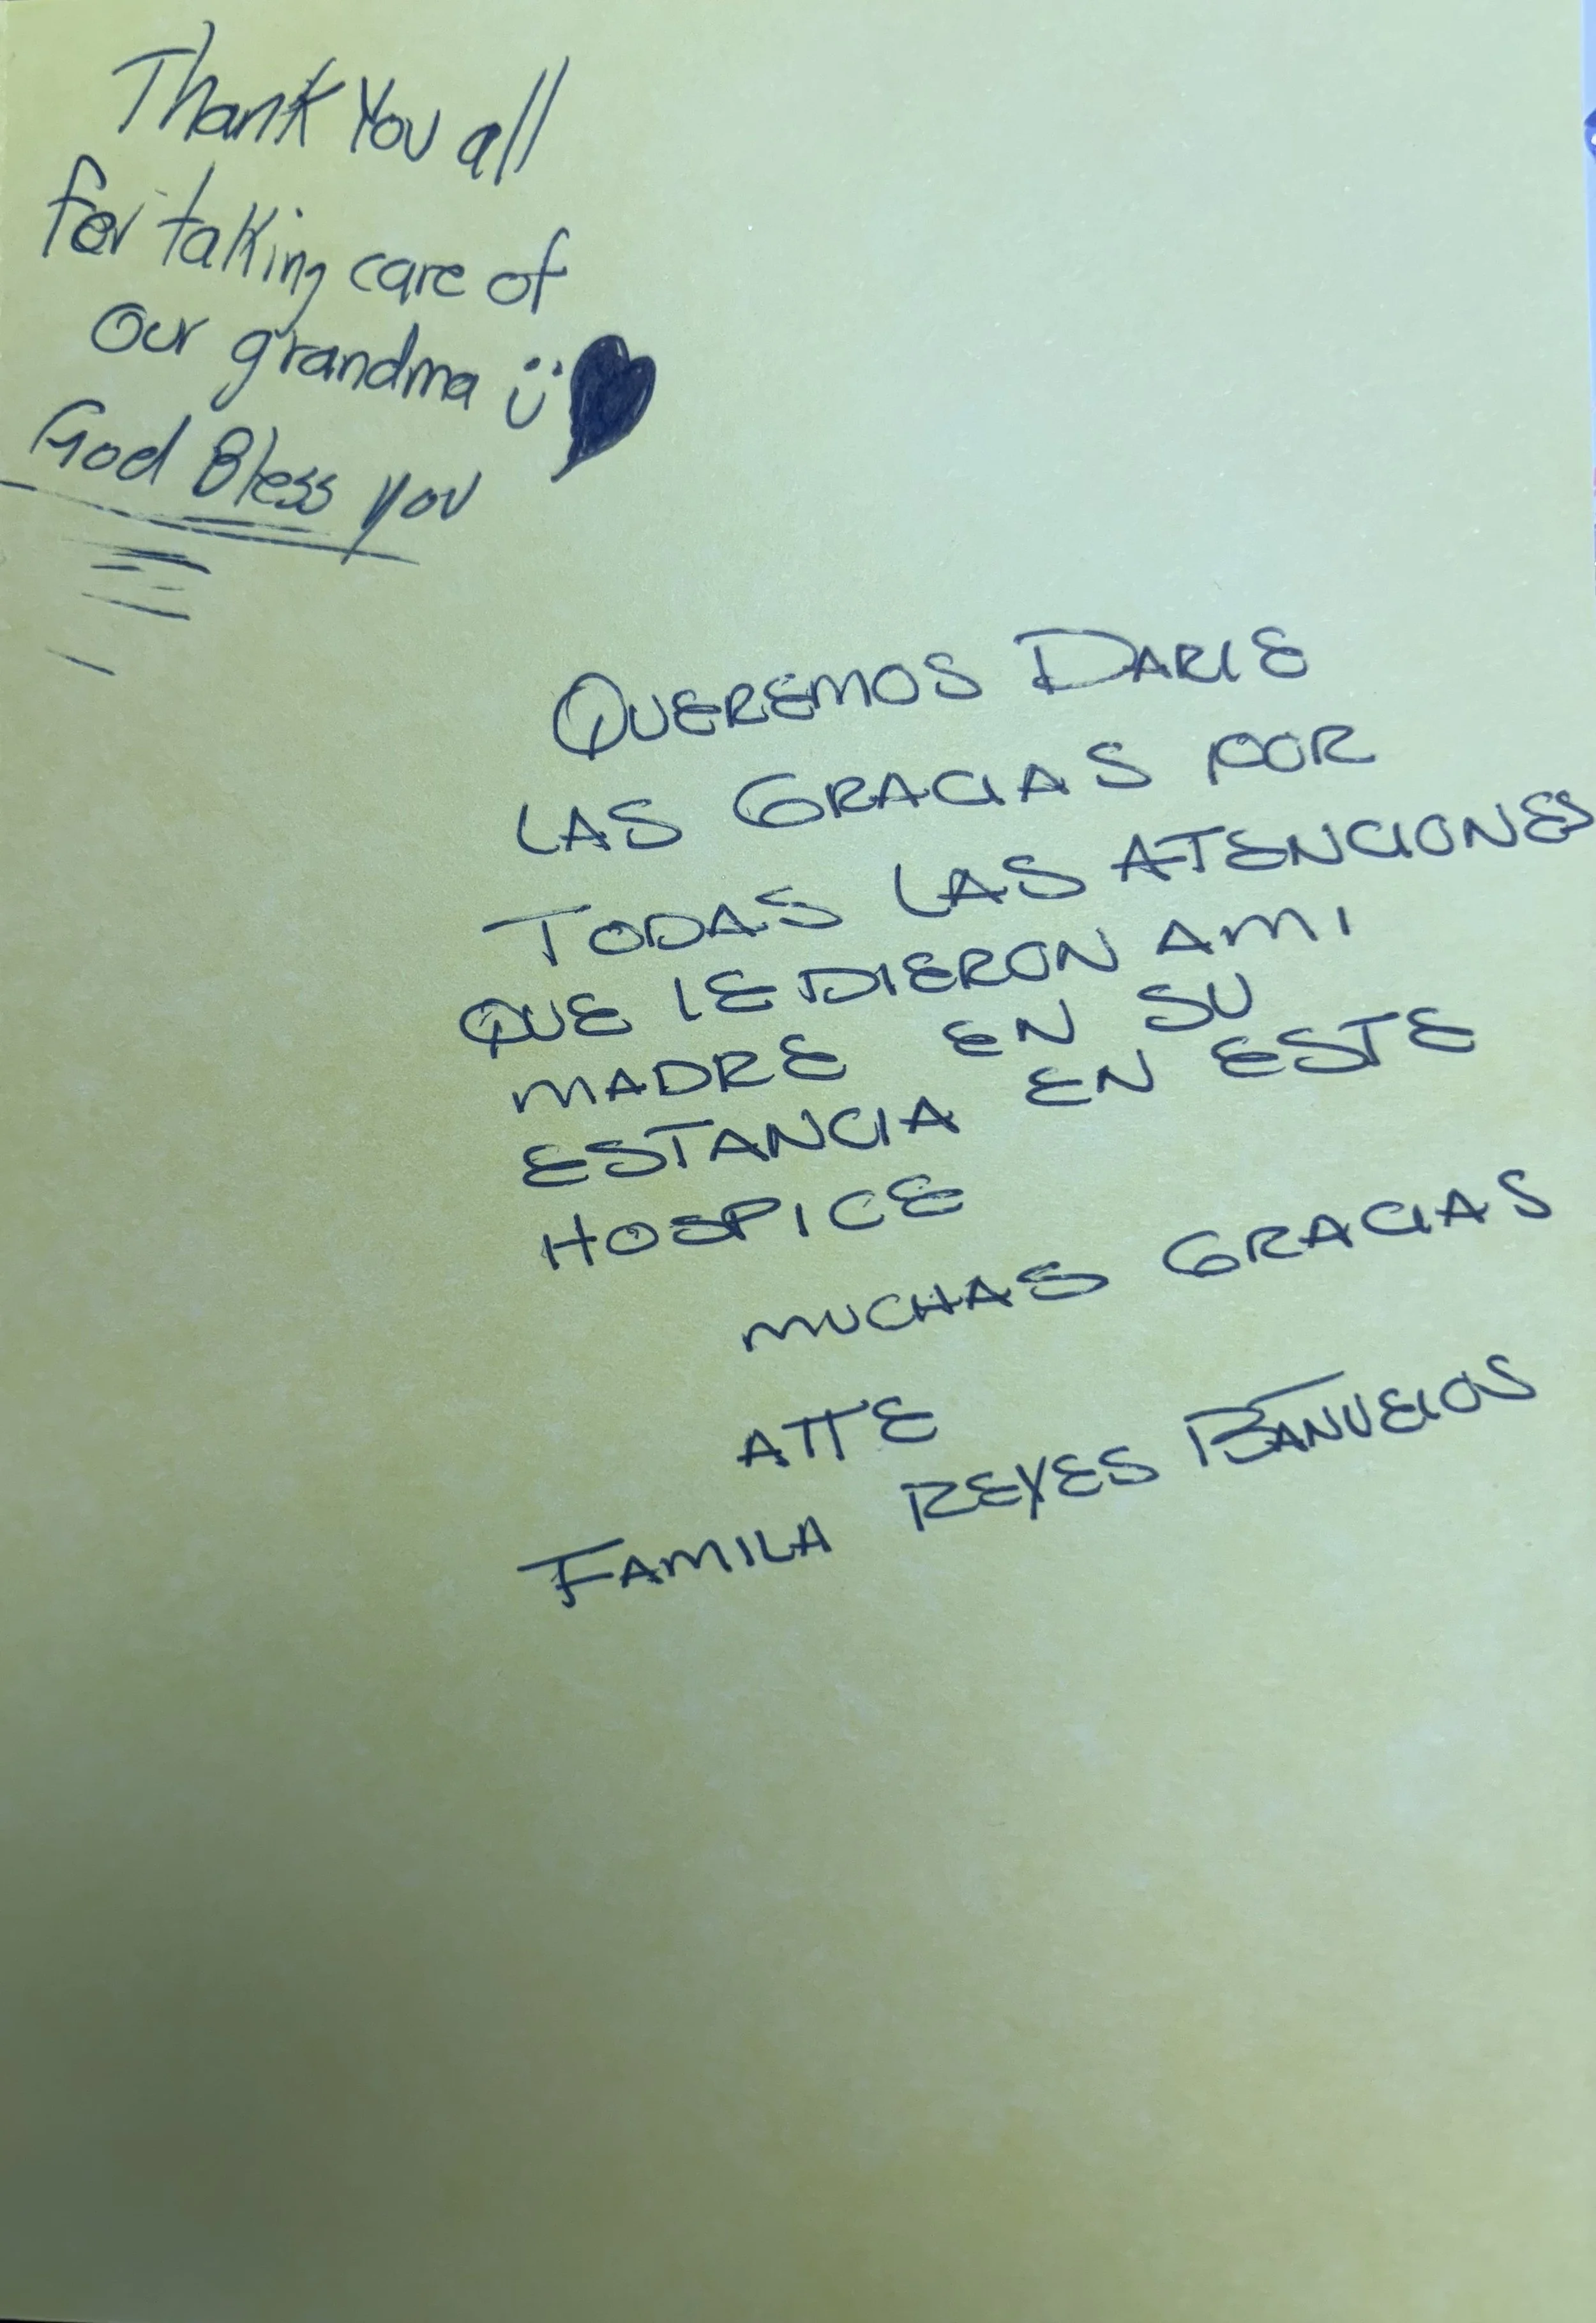 Thank You all
for taking care of
Our grandma Ü ♥
God Bless you
QUEREMOS DARLE
LAS GRACIAS POR
TODAS LAS ATENCIONES
QUE LE DIERON AMI
MADRE EN SU
ESTANCIA EN ESTE
HOSPICE
MUCHAS GRACIAS
ATTE
FAMILA REYES BANUELOS